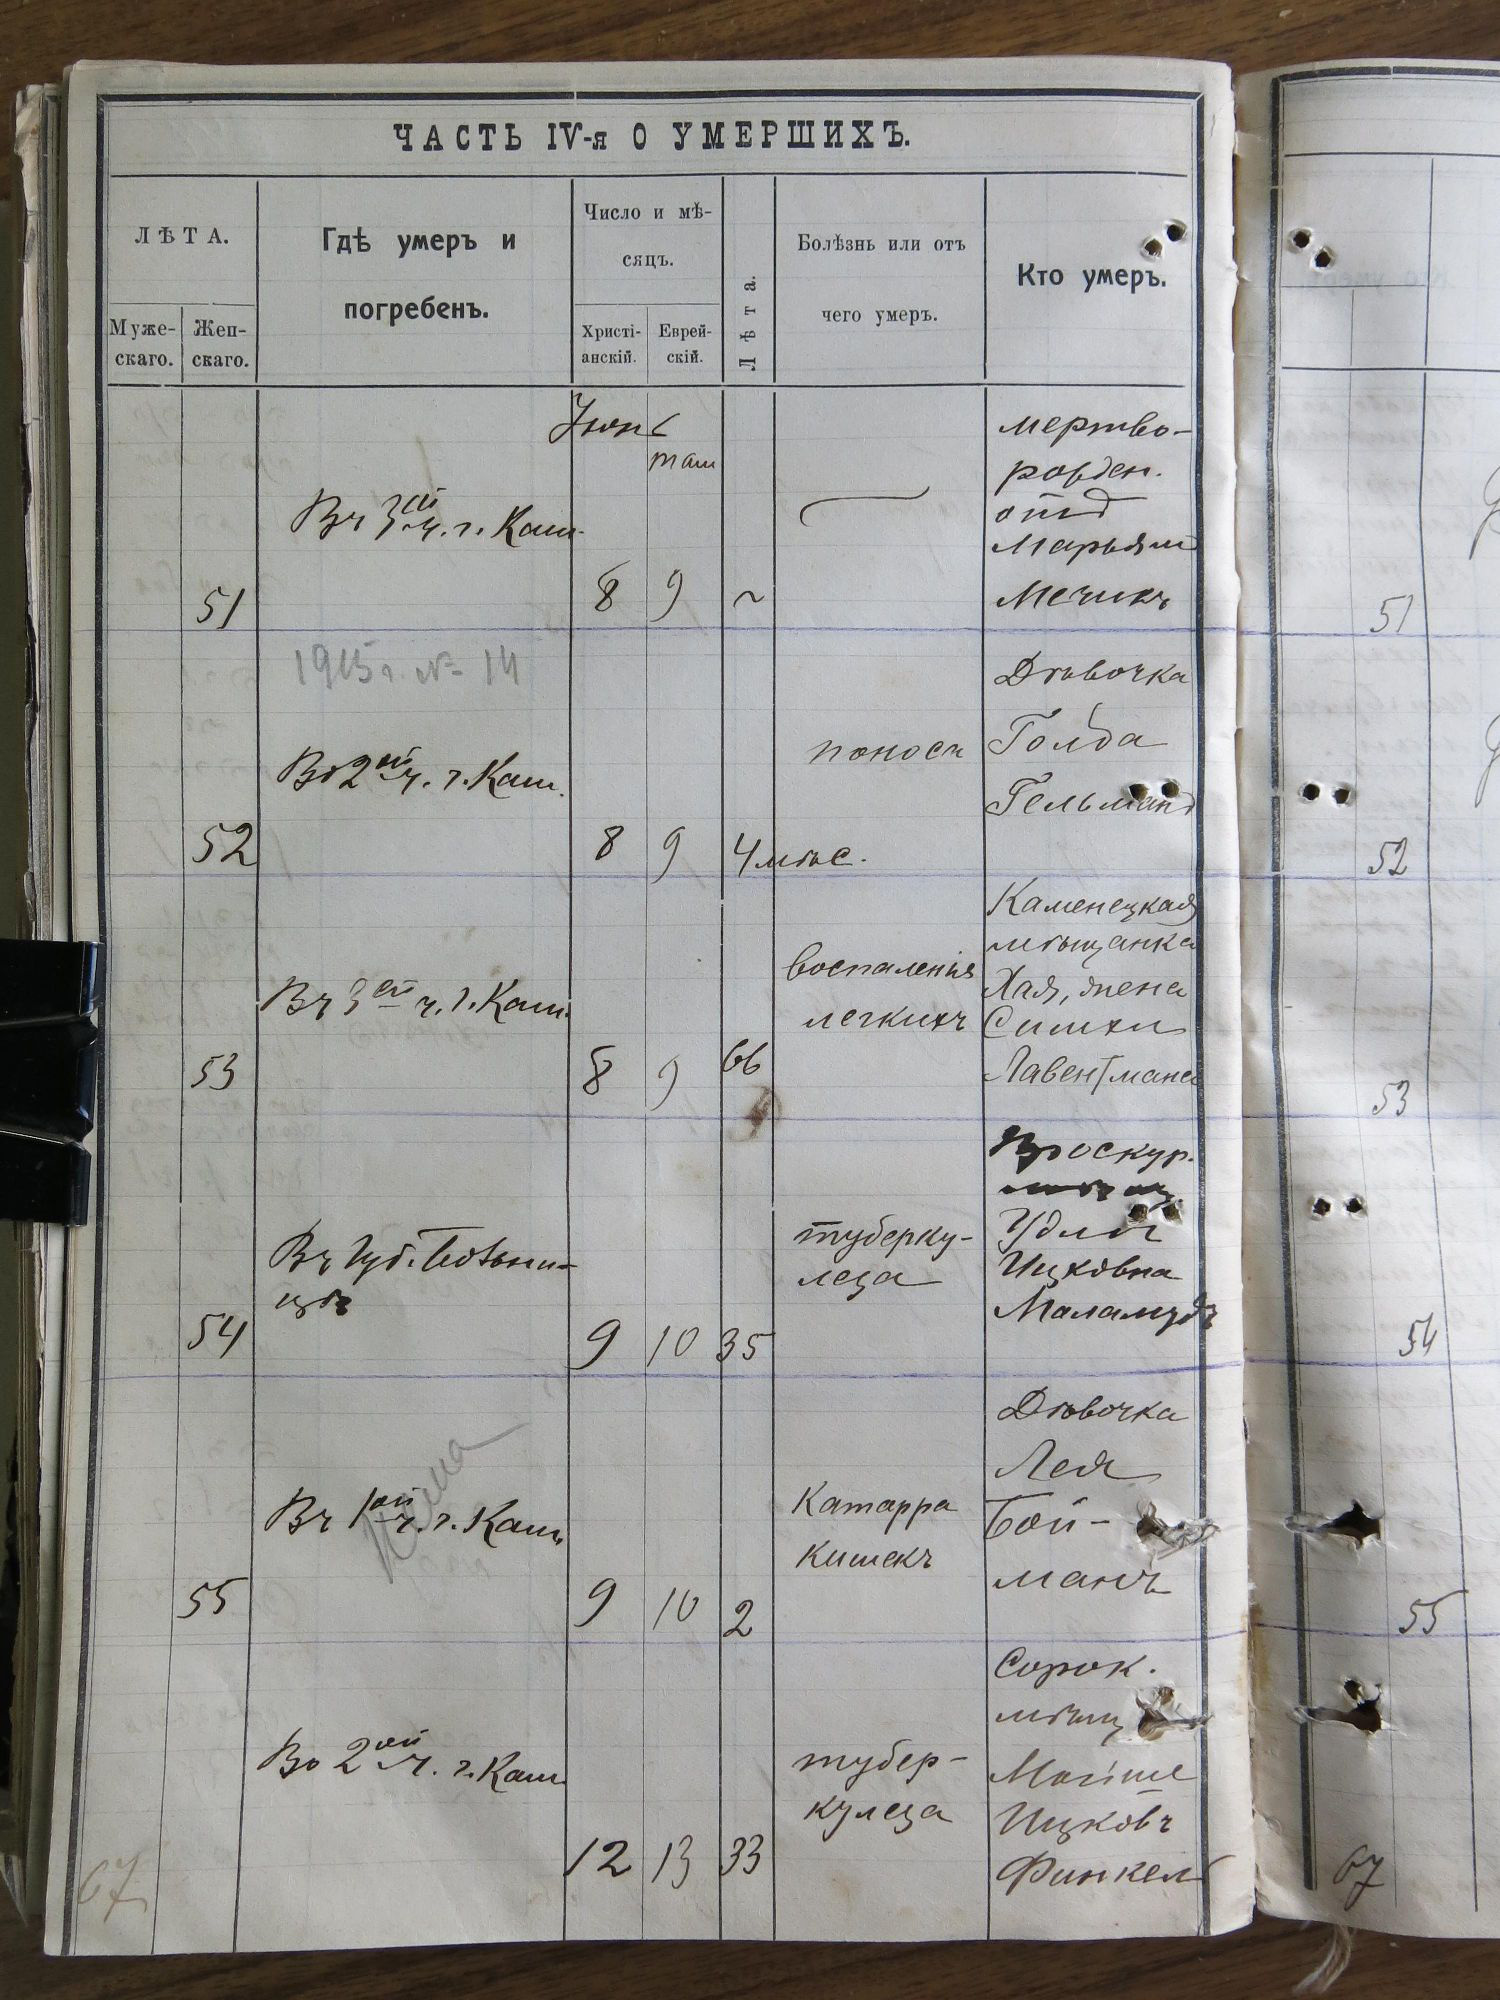 ЧАСТЬ IV-я О УМЕРШИХЪ.
ЛѢТА.
Муже-
скаго.
Жен-
скаго.
Гдѣ умеръ и
погребенъ.
Число и мѣ-
сяцъ.
Христі-
анскій.
Еврей-
скій.
Лѣта.
Болѣзнь или отъ
чего умеръ.
Кто умеръ.
Іюнь
там
51
Въ 3ей ч. г. Кам.
8
9
~
мертво-
рожден.
отъ
Марьям
Мечикъ
51
1915 г. № 14
52
Во 2ой ч. г. Кам.
8
9
4 мѣс.
поносъ
Дѣвочка
Голда
Гельманъ
52
53
Въ 3ей ч. г. Кам.
8
9
66
воспаленія
легкихъ
Каменецкая
мѣщанка
Хая, жена
Симхи
Лавентмана
53
54
Въ Губ. Больни-
цѣ
9
10
35
туберку-
леза
Проскур.
мѣщ.
Удля
Ицковна
Маламудъ
54
55
Въ 1ой ч. г. Кам.
9
10
2
Катарра
кишекъ
Дѣвочка
Лея
Бой-
манъ
55
67
Во 2ой ч. г. Кам.
12
13
33
тубер-
кулеза
Сорок.
мѣщ
Ицковъ
Финкель
67